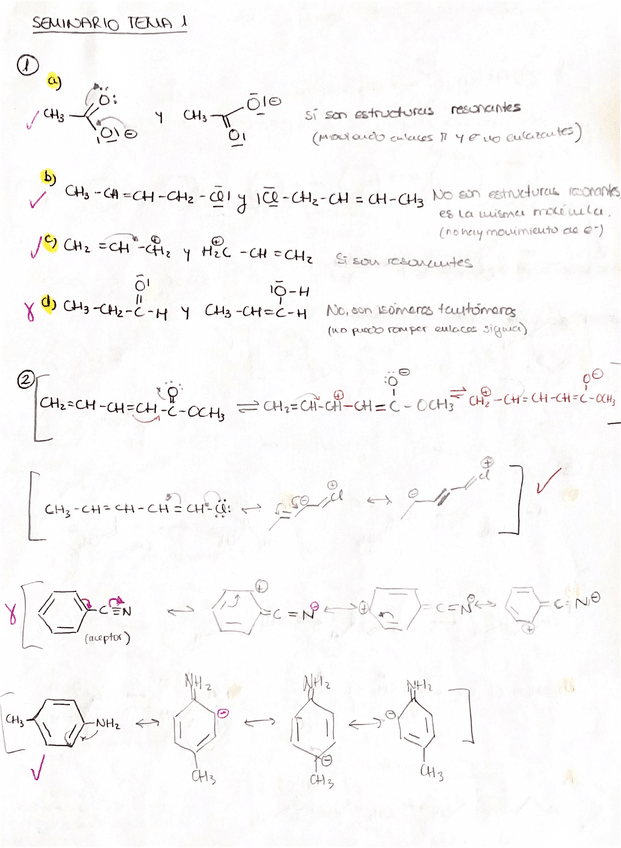 SEMINARIO TEMA 1
①
a)
✓ CH₃ O: |O|⊖ y CH₃ O|⊖ O| Sí son estructuras resonantes
(moviendo enlaces π y e⁻ no enlazantes)
b)
✓ CH₃-CH=CH-CH₂-Cl| y |Cl-CH₂-CH=CH-CH₃ No son estructuras resonantes,
es la misma molécula.
(no hay movimiento de e-)
✓ c) CH₂=CH-CH₂⊕ y H₂C⊕-CH=CH₂ Sí son resonantes
γ d) CH₃-CH₂-C(=O|)-H y CH₃-CH=C(|O-H)-H No, son isómeros tautómeros
(no puedo romper enlaces sigma)
②
[CH₂=CH-CH=CH-C(=O)-OCH₃ ⇌ CH₂=CH-CH⊕-CH=C(O⊖)-OCH₃ ⇌ CH₂⊕-CH=CH-CH=C(O⊖)-OCH₃
[CH₃-CH=CH-CH=CH-Cl: ↔ ⊖ Cl⊕ ↔ ⊖ Cl⊕] ✓
γ [C≡N ↔ ⊕ =C=N⊖ ↔ ⊕ =C=N⊖ ↔ ⊕ =C=N⊖
(aceptor)
[CH₃ NH₂ ↔ NH₂ ⊖ CH₃ ↔ NH₂ ⊖ CH₃ ↔ NH₂ ⊖ CH₃]
✓